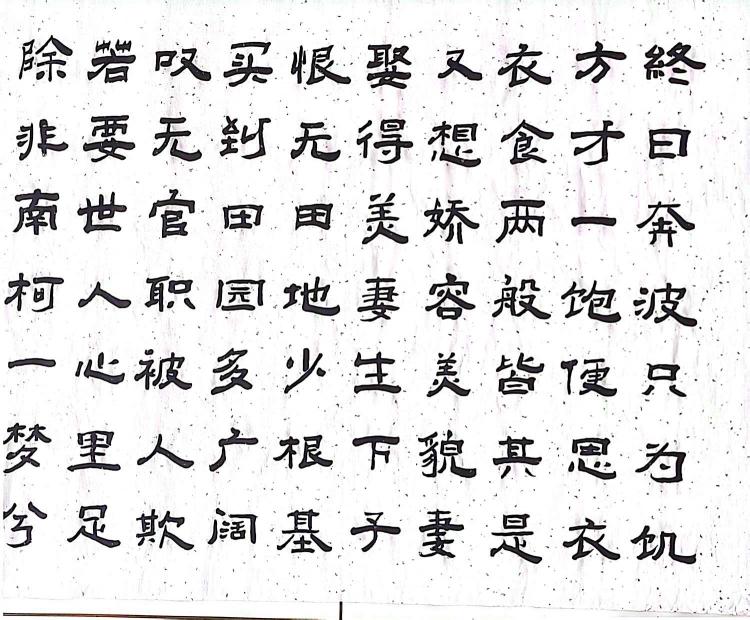 終日奔波只为饥
方才一饱便思衣
衣食两般皆其是
又想娇容美貌妻
娶得美妻生下子
恨无田地少根基
买到田园多广阔
叹无官职被人欺
若要世人心里足
除非南柯一梦兮